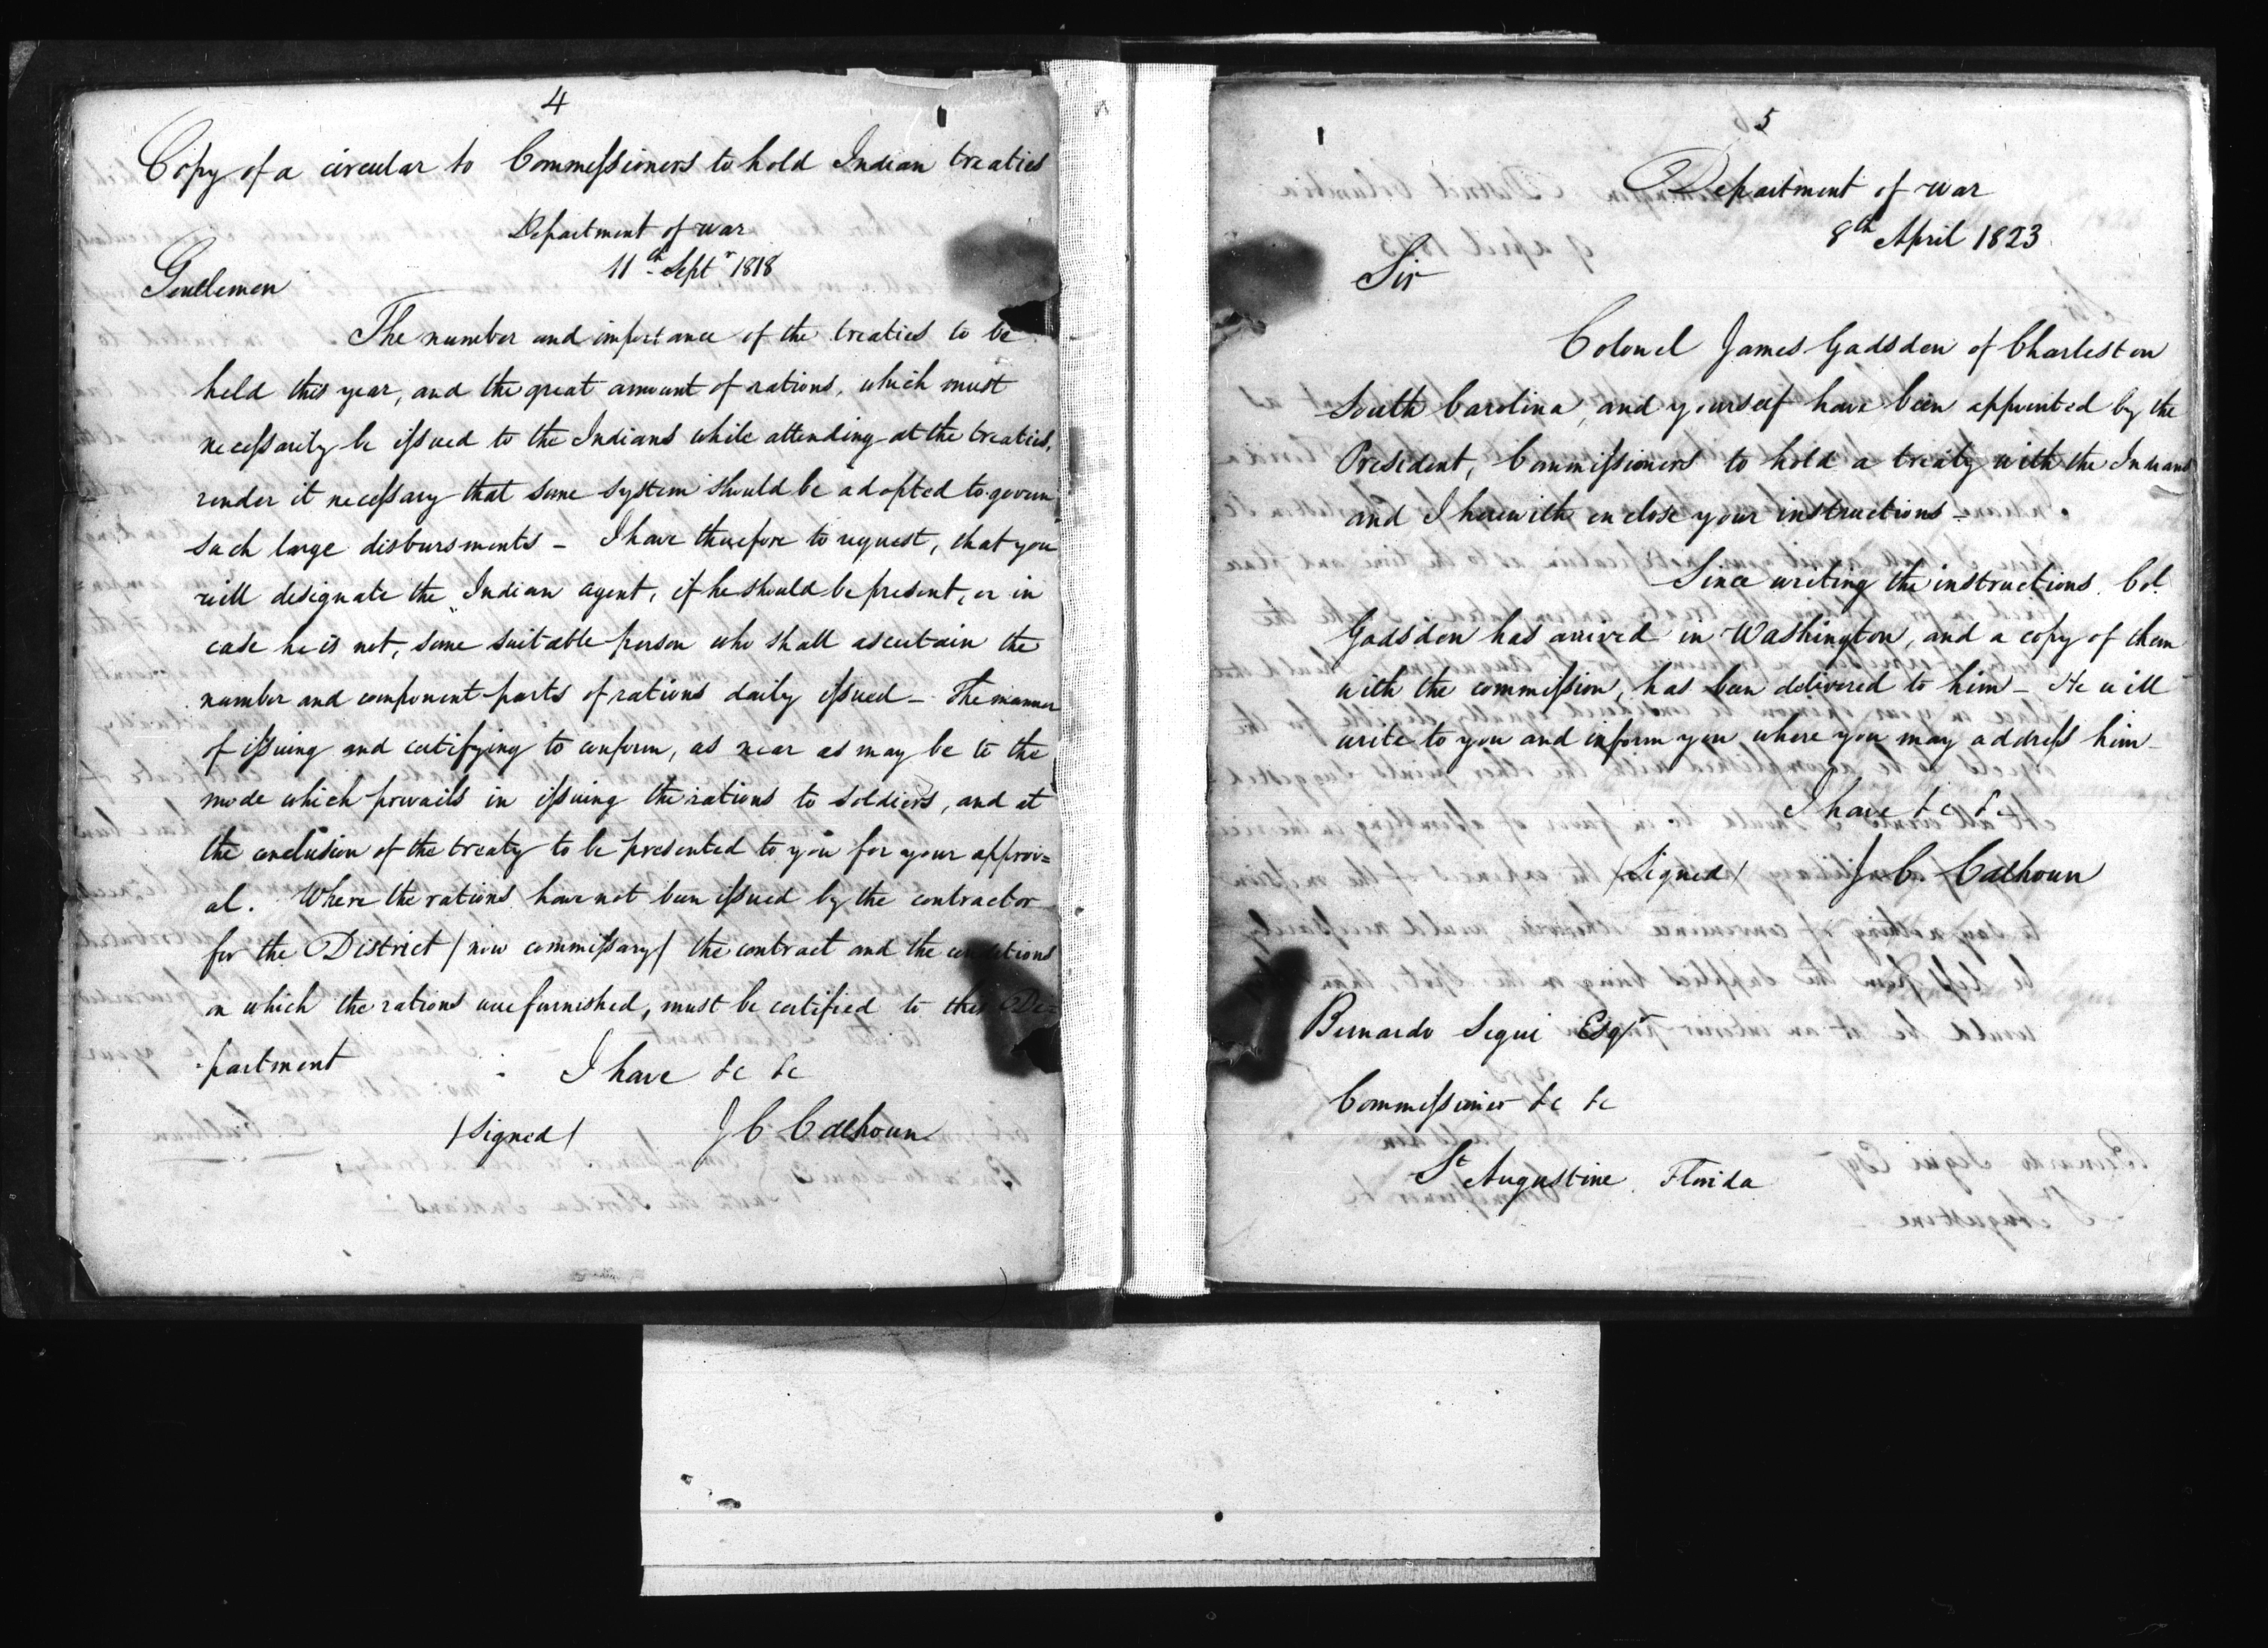 4
Copy of a circular to Commissioners to hold Indian treaties
Department of war
11th Septr 1818
Gentlemen
The number and importance of the treaties to be
held this year, and the great amount of rations, which must
necessarily be issued to the Indians while attending at the treaties,
render it necessary that some system should be adopted to govern
such large disbursments - I have therefore to request, that you
will designate the Indian agent, if he should be present, or in
case he is not, some suitable person who shall ascertain the
number and component parts of rations daily issued - The manner
of issuing and certifying to conform, as near as may be to the
mode which prevails in issuing the rations to soldiers, and at
the conclusion of the treaty to be presented to you for your approv=
al. Where the rations have not been issued by the contractor
for the District /now commissary/ the contract and the conditions
on which the rations are furnished, must be certified to this De=
partment I have &c &c
/signed/ J C Calhoun
5
Department of war
8th April 1823
Sir
Colonel James Gadsden of Charleston
South Carolina, and yourself have been appointed by the
President, Commissioners to hold a treaty with the Indians
and I herewith enclose your instructions -
Since writing the instructions Col.
Gadsden has arrived in Washington, and a copy of them
with the commission, has been delivered to him - He will
write to you and inform you where you may address him -
I have &c &c
/Signed/ J C. Calhoun
Bernardo Segui Esqr
Commissioner &c &c
St Augustine Florida